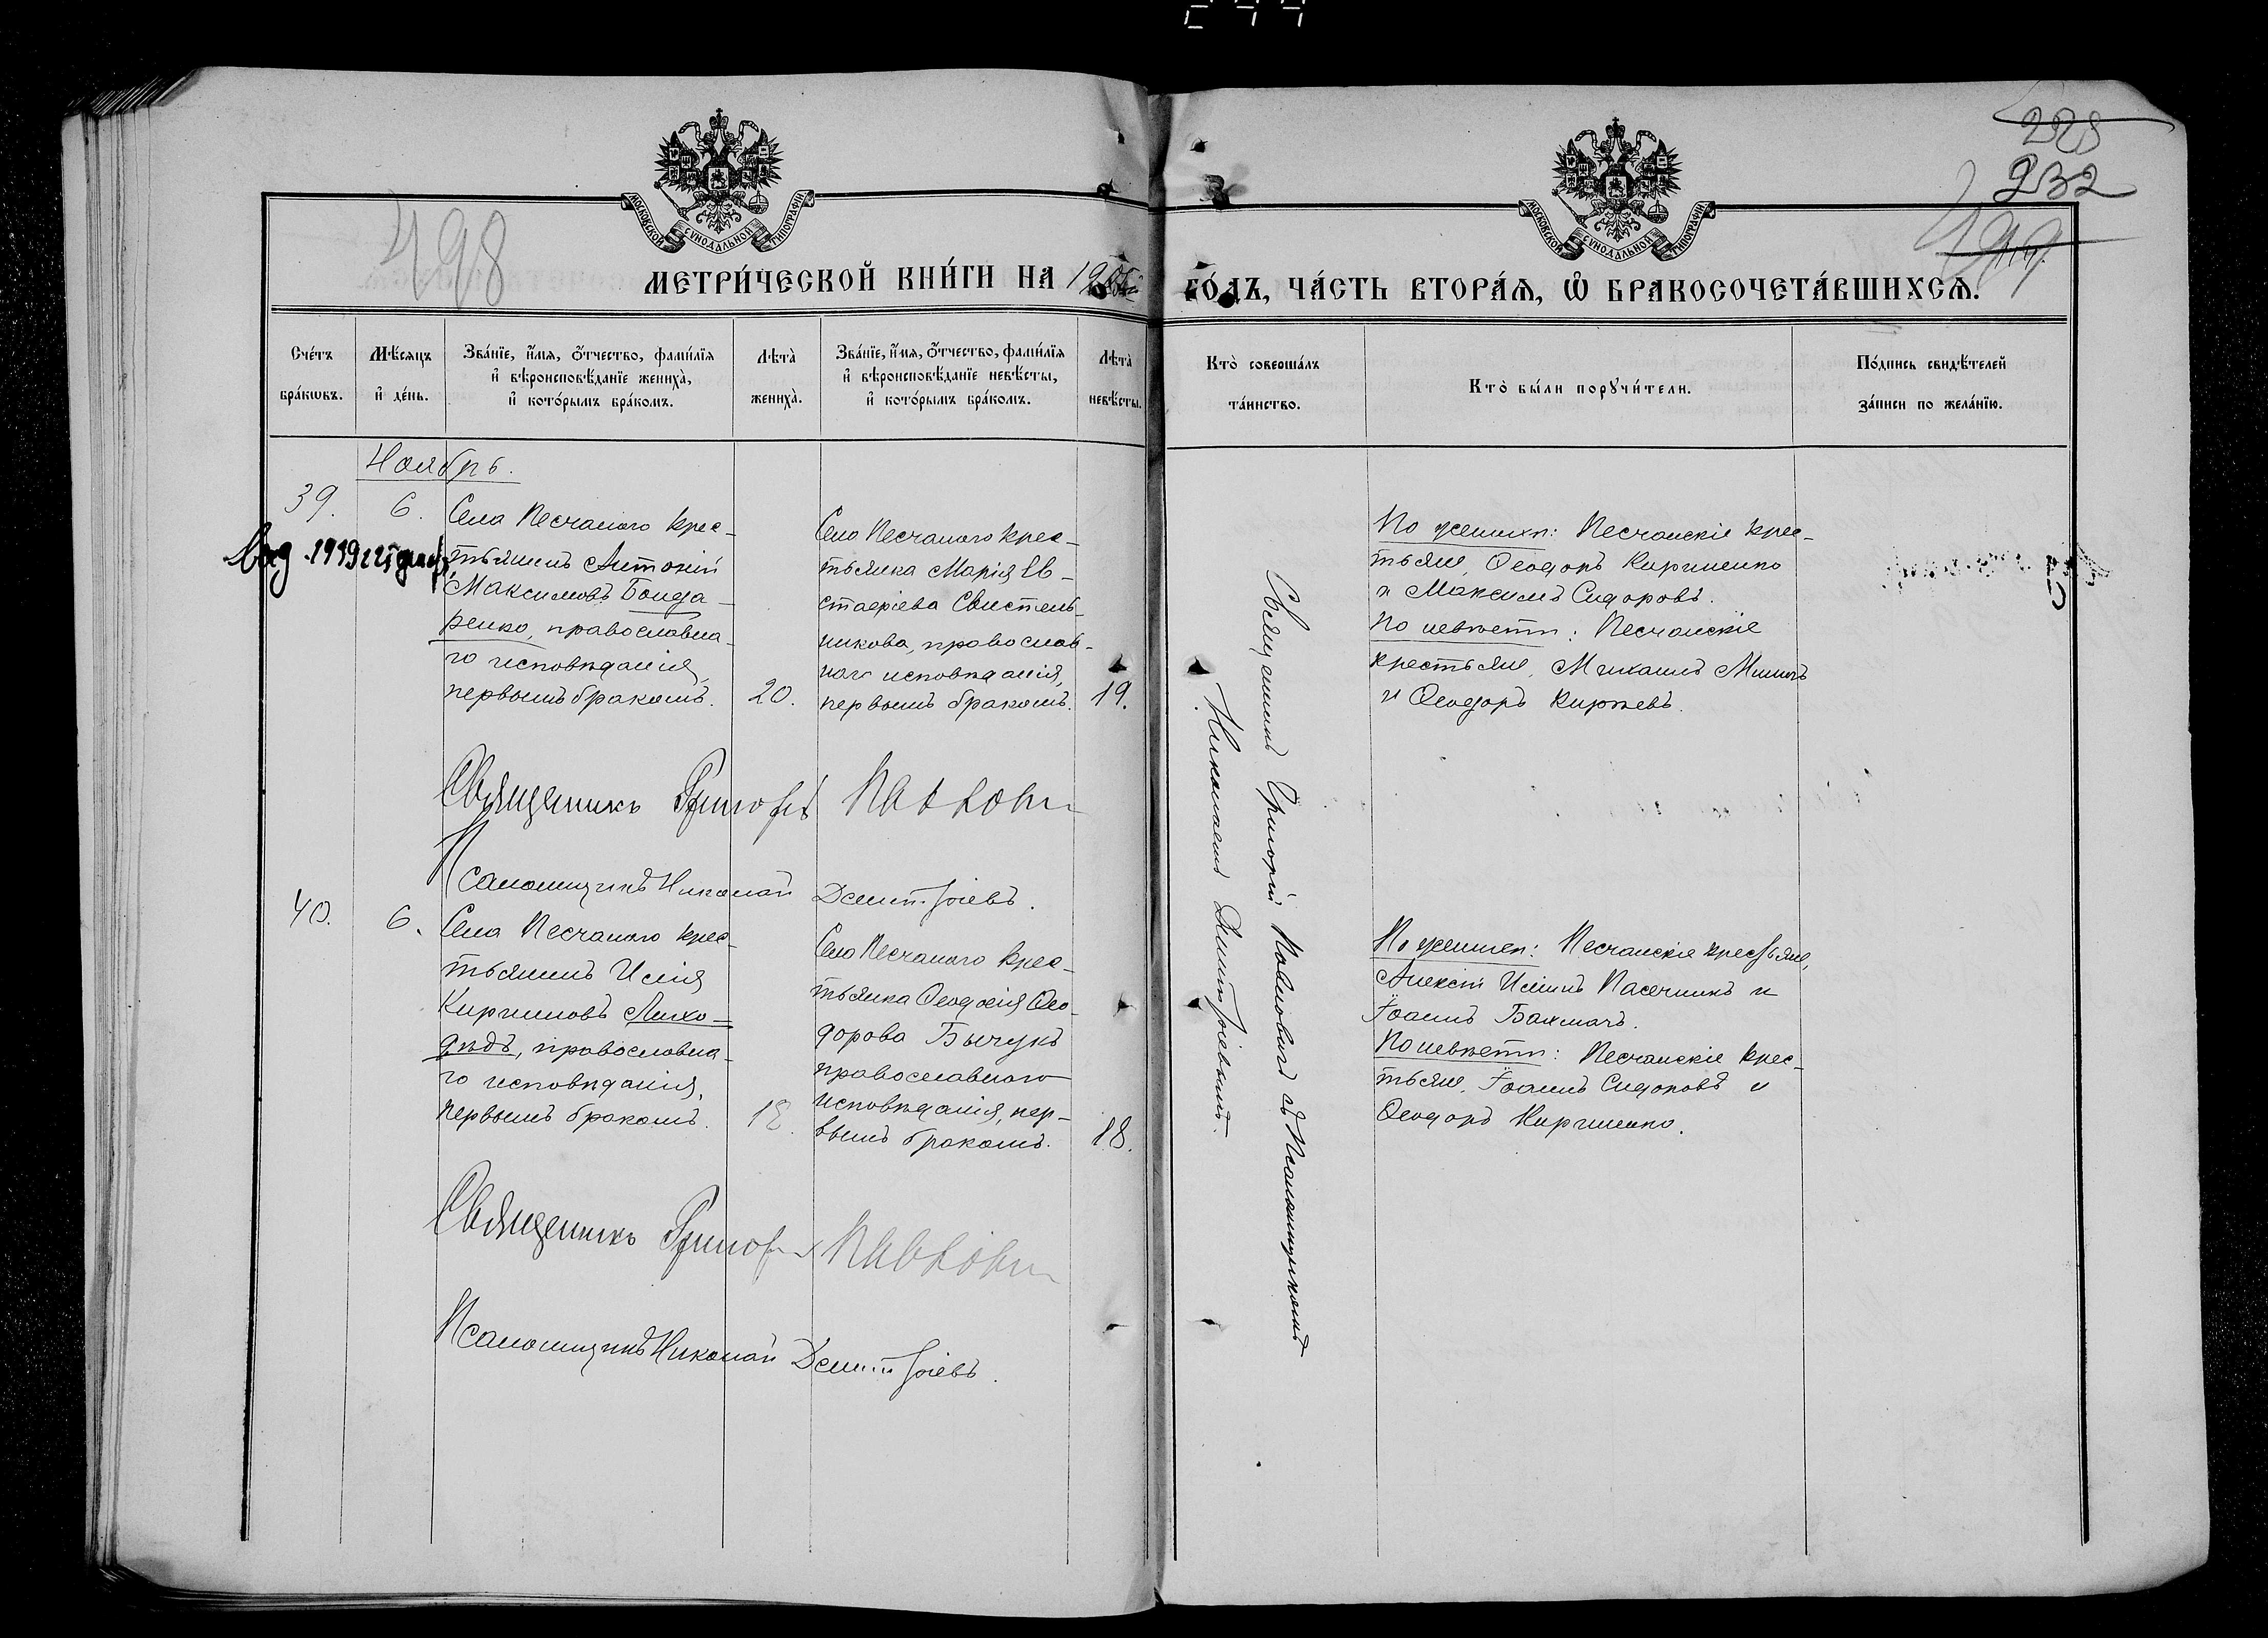 498
228
232
499
МОСКОВСКОЙ СѴНОДАЛЬНОЙ ТИПОГРАФІИ
МОСКОВСКОЙ СѴНОДАЛЬНОЙ ТИПОГРАФІИ
МЕТРИ́ЧЕСКОЙ КНИ́ГИ НА
ГО́ДЪ, ЧА́СТЬ ВТОРА́Ѧ, Ѽ БРАКОСОЧЕТА́ВШИХСѦ.
Сче́тъ бра́кѡвъ.
Мѣ́сѧцъ и҆ де́нь.
Зва́нїе, и҆́мѧ, ѻ҆́тчество, фами́лїѧ
и҆ вѣроисповѣ́данїе жениха̀,
и҆ кото́рымъ бра́комъ.
Лѣта̀ жениха̀.
Зва́нїе, и҆́мѧ, ѻ҆́тчество, фами́лїѧ
и҆ вѣроисповѣ́данїе невѣ́сты,
и҆ кото́рымъ бра́комъ.
Лѣта̀ невѣ́сты.
Кто̀ соверша́лъ
та́инство.
Кто̀ бы́ли порꙋчи́тели.
По́дпись свидѣ́телей
за́писи по жела́нїю.
Ноябрь.
39.
6.
Села Песчаного крес-
тьянинъ Антоній
Максимовъ Бонда-
ренко, православна-
го исповѣданія,
первымъ бракомъ.
20.
Села Песчаного крес-
тьянка Марія Ев-
стафіева Свистель-
никова, православ-
наго исповѣданія,
первымъ бракомъ.
19.
1919
Священникъ Григорій Павлович съ Псаломщикомъ
Николаемъ Димитріевымъ.
По женихѣ: Песчанскіе крес-
тьяне, Ѳеодоръ Кириченко
и Максимъ Сидоровъ.
По невѣстѣ: Песчанскіе
крестьяне, Михаилъ
и Ѳеодоръ
Священникъ Григорій Павлович
Псаломщикъ Николай Димитріевъ.
40.
6.
Села Песчаного крес-
тьянинъ Илія
Кирилловъ Лихо-
дѣдъ, православна-
го исповѣданія,
первымъ бракомъ.
18.
Села Песчаного крес-
тьянка Ѳеодосія Ѳео-
дорова Бычукъ
православнаго
исповѣданія, пер-
вымъ бракомъ.
18.
По женихѣ: Песчанскіе крестьяне,
Алексій Илiинъ Пасечникъ и
Іоаннъ Бахмачъ.
По невѣстѣ: Песчанскіе крес-
тьяне, Іоаннъ Сидоровъ и
Ѳеодоръ Кириченко.
Священникъ Григорій Павлович
Псаломщикъ Николай Димитріевъ.